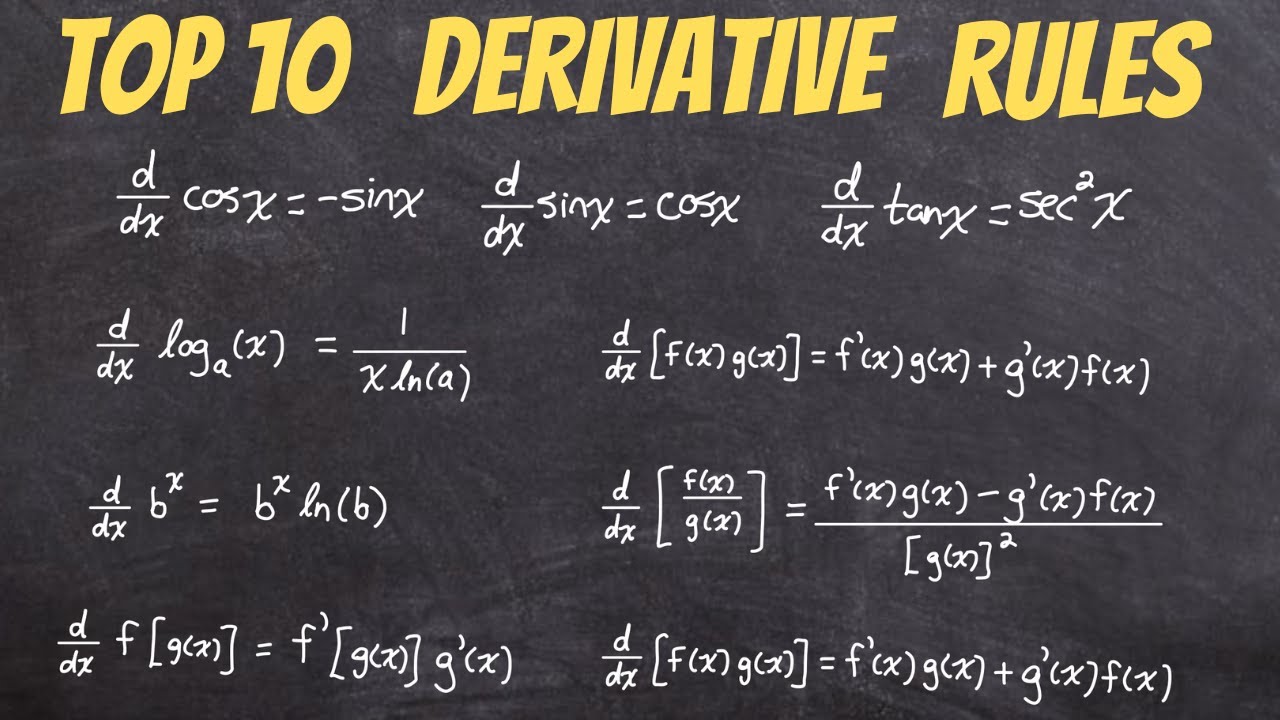 TOP 10 DERIVATIVE RULES
d/dx cosx = -sinx d/dx sinx = cosx d/dx tanx = sec²x
d/dx logₐ(x) = 1/(x ln(a)) d/dx [f(x) g(x)] = f'(x) g(x) + g'(x) f(x)
d/dx bˣ = bˣ ln(b) d/dx [f(x)/g(x)] = (f'(x) g(x) - g'(x) f(x))/[g(x)]²
d/dx f[g(x)] = f'[g(x)] g'(x) d/dx [f(x) g(x)] = f'(x) g(x) + g'(x) f(x)